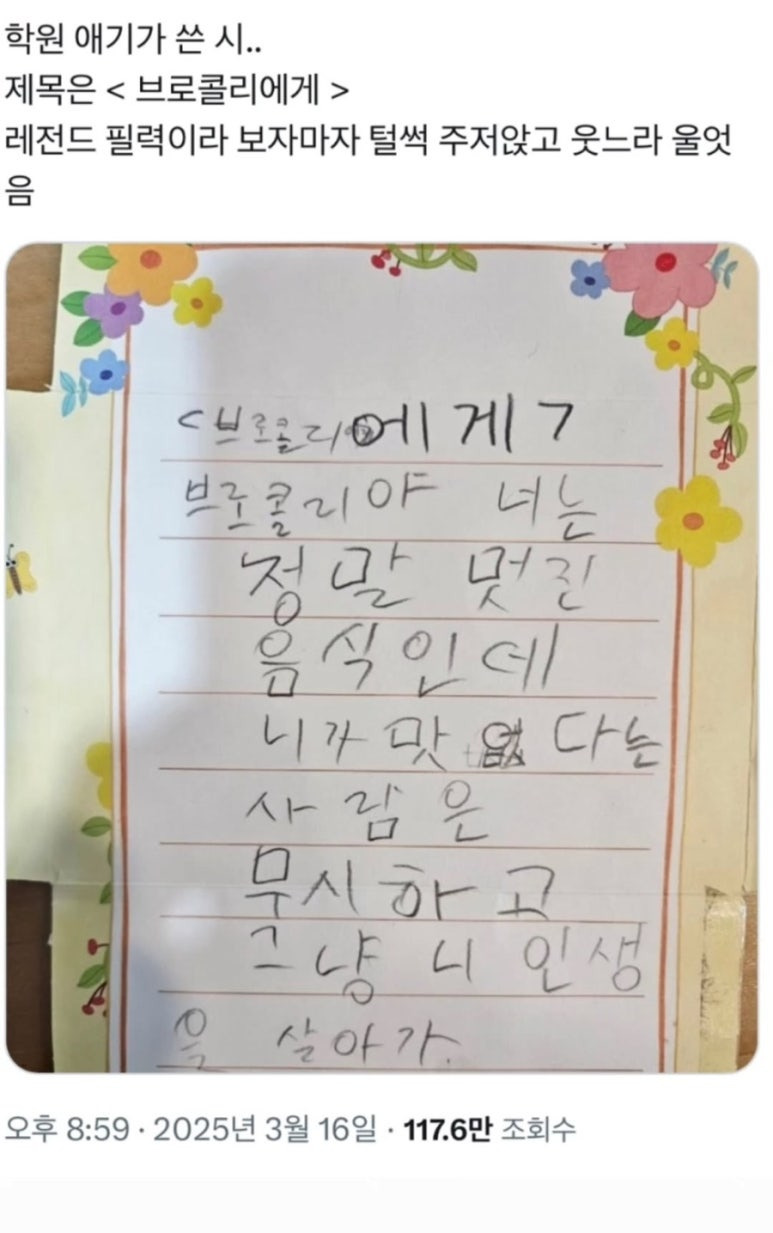 학원 애기가 쓴 시..
제목은 < 브로콜리에게 >
레전드 필력이라 보자마자 털썩 주저앉고 웃느라 울엇
음
<브로콜리에게7
브로콜리야 너는
정말 멋진
음식인데
니가 맛없다는
사람은
무시하고
그냥 니 인생
을 살아가.
오후 8:59 · 2025년 3월 16일 · 117.6만 조회수